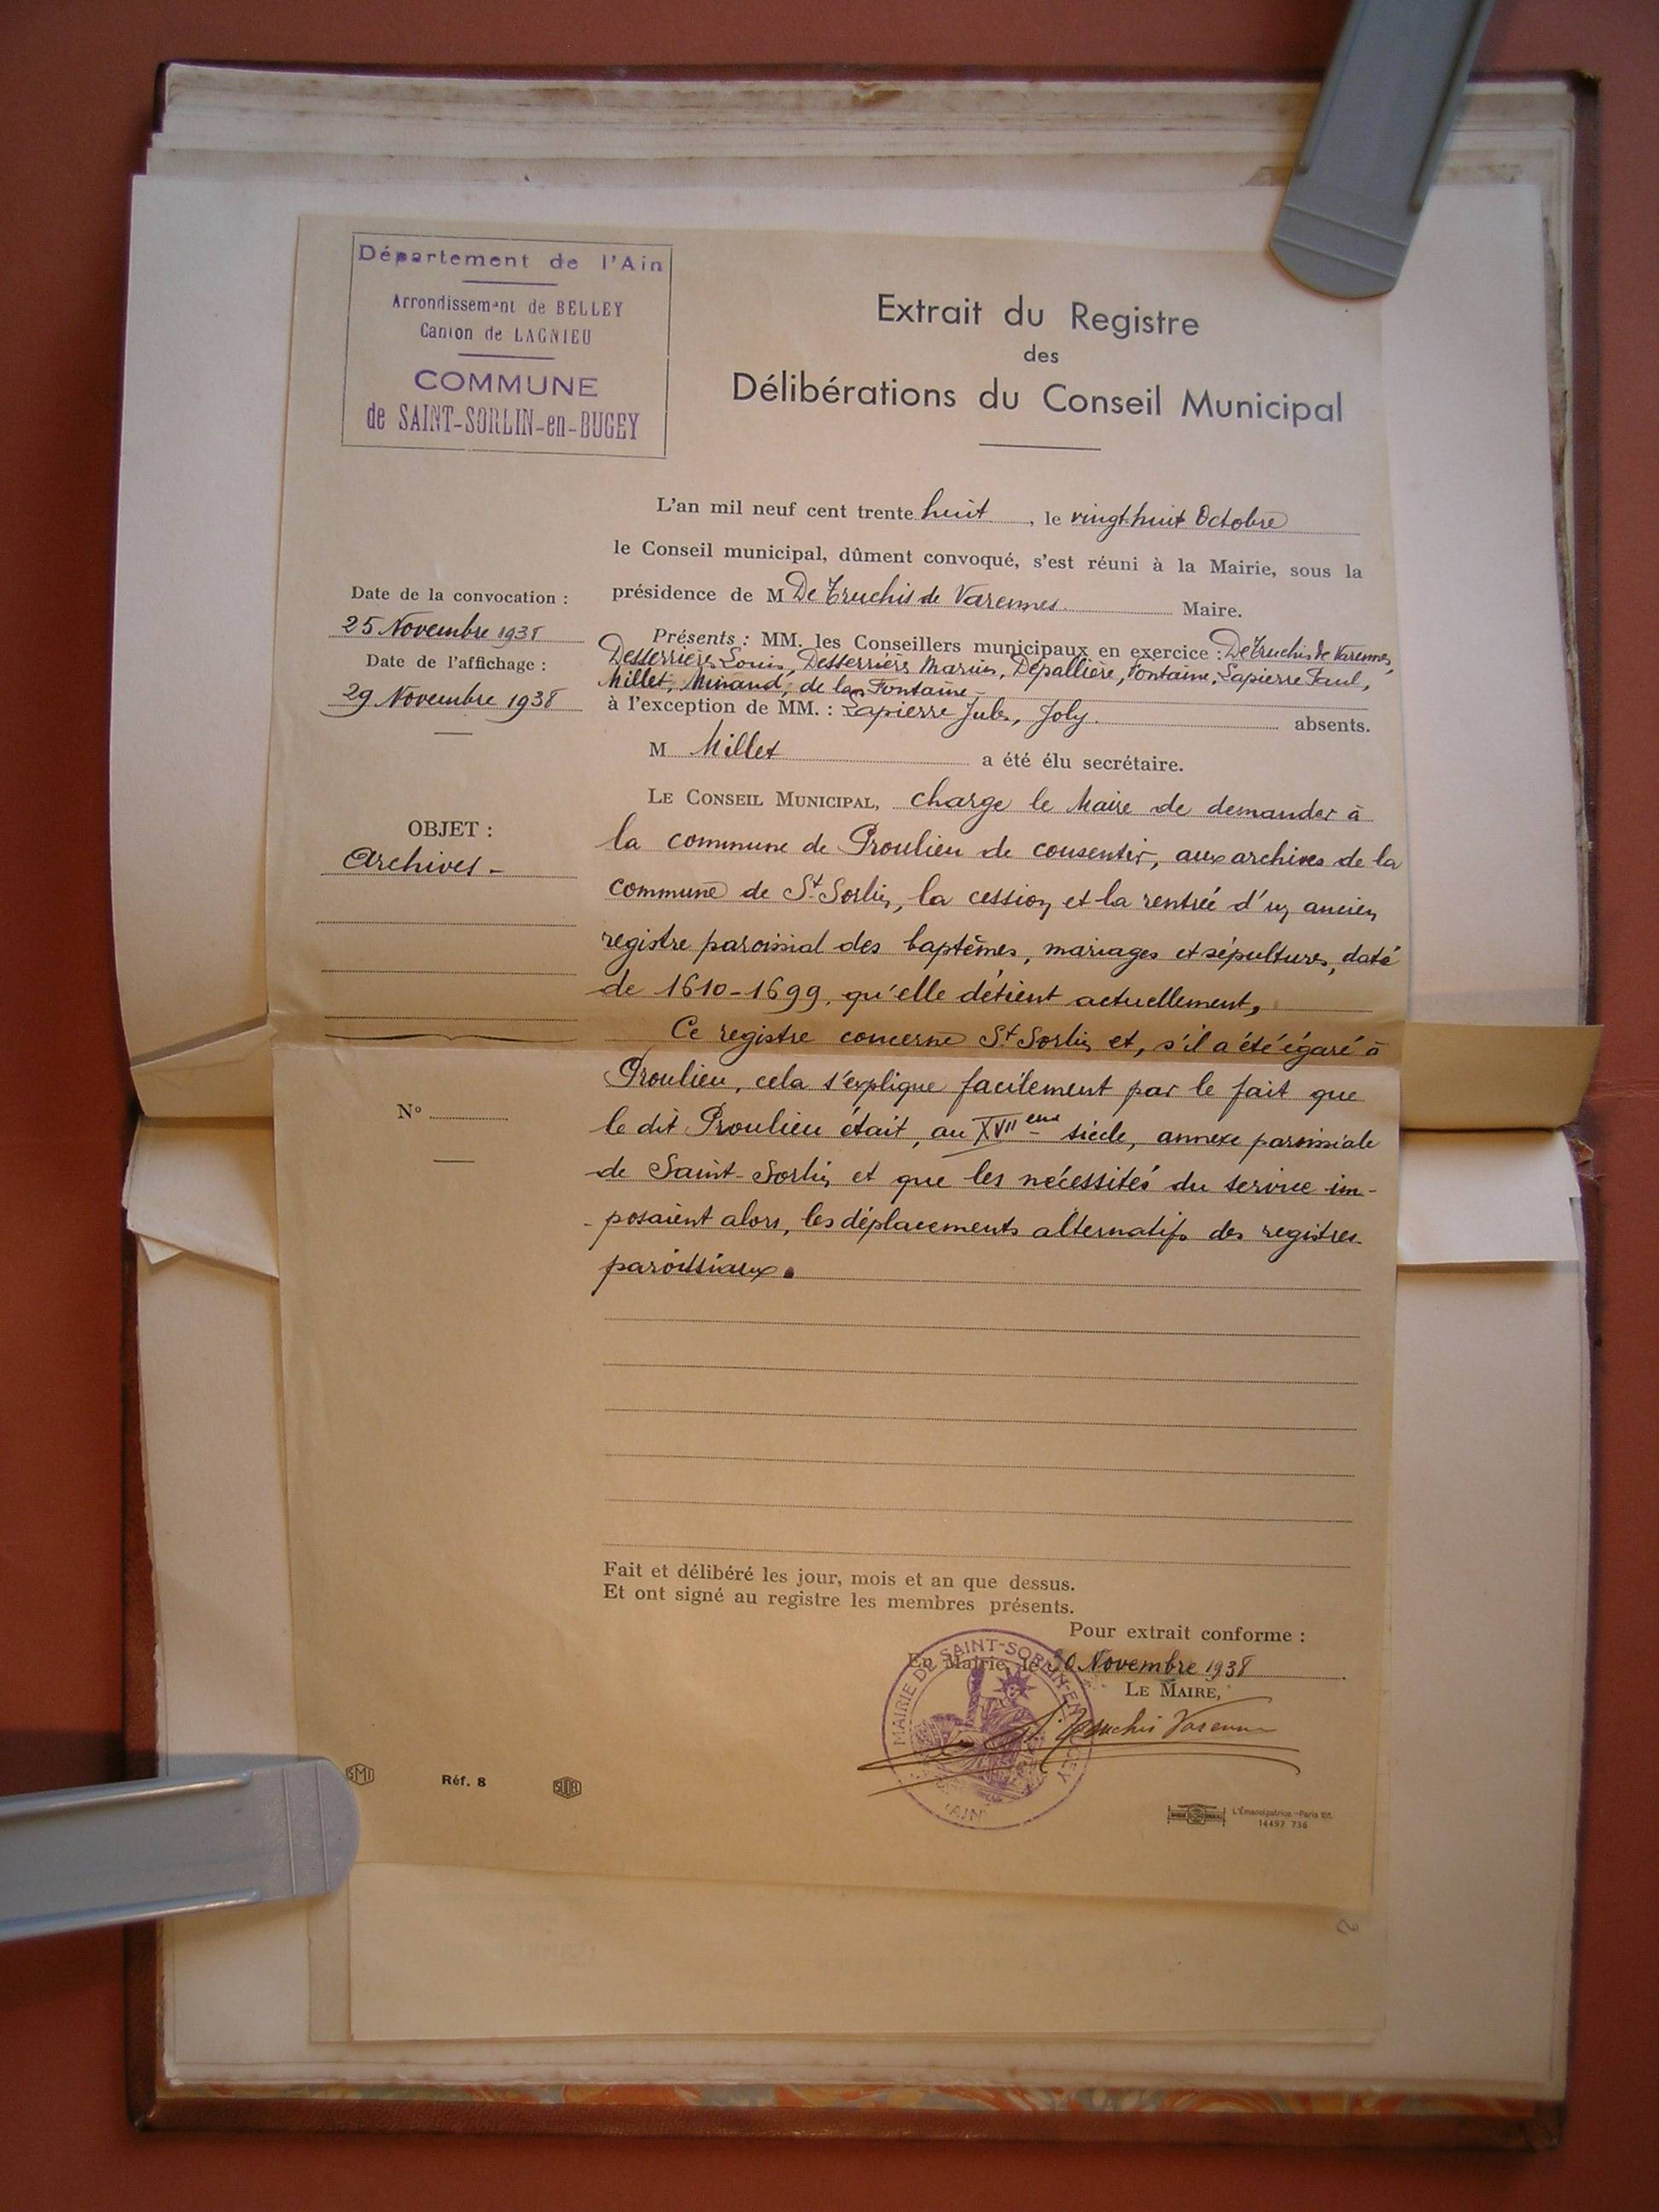 Département de l'Ain
Arrondissement de BELLEY
Canton de LAGNIEU
COMMUNE
de SAINT-SORLIN-en-BUGEY
Extrait du Registre
des
Délibérations du Conseil Municipal
L'an mil neuf cent trente huit, le vingt-huit Octobre
le Conseil municipal, dûment convoqué, s'est réuni à la Mairie, sous la
présidence de M De Truchis de Varennes Maire.
Date de la convocation :
25 Novembre 1938
Date de l'affichage :
29 Novembre 1938
Présents : MM. les Conseillers municipaux en exercice : De Truchis de Varennes,
Desserrières Louis, Desserrières Marius, Dépallière, Fontaine, Lapierre Paul,
Millet, Minand, de la Fontaine -
à l'exception de MM. : Lapierre Jules, Joly. absents.
M Millet a été élu secrétaire.
OBJET :
Archives -
N°
LE CONSEIL MUNICIPAL, charge le Maire de demander à
la commune de Proulieu de consentir, aux archives de la
commune de St. Sorlin, la cession et la rentrée d'un ancien
registre paroissial des baptêmes, mariages et sépultures, daté
de 1610-1699, qu'elle détient actuellement,
Ce registre concerne St. Sorlin et, s'il a été égaré à
Proulieu, cela s'explique facilement par le fait que
le dit Proulieu était, au XVIIème siècle, annexe paroissiale
de Saint-Sorlin et que les nécessités du service im-
- posaient alors, les déplacements alternatifs des registres
paroissiaux.
Fait et délibéré les jour, mois et an que dessus.
Et ont signé au registre les membres présents.
Pour extrait conforme :
En Mairie, le 30 Novembre 1938
LE MAIRE,
Truchis Varennes
MAIRIE DE SAINT-SORLIN-EN-BUGEY
(AIN)
SMI
Réf. 8
SUDEL
L'Émancipatrice - Paris 15e.
14497 736
2